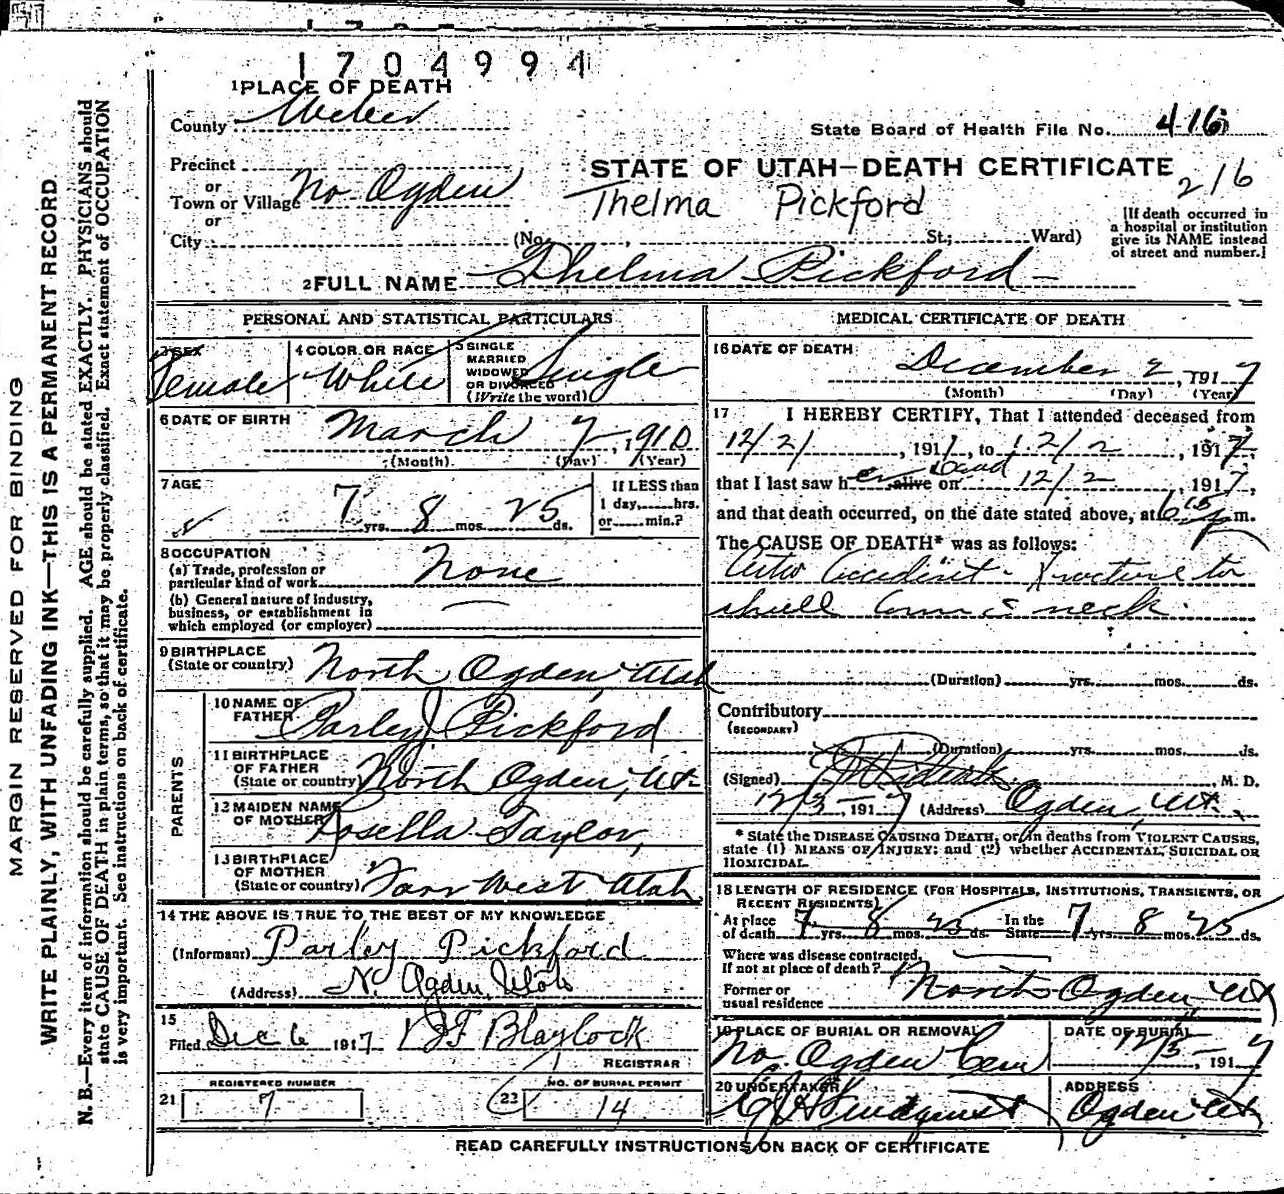 1704994
1 PLACE OF DEATH
County Weber
State Board of Health File No. 416
Precinct
STATE OF UTAH—DEATH CERTIFICATE
216
or
Town or Village No Ogden
Thelma Pickford
or
City (No. St.; Ward)
[If death occurred in
a hospital or institution
give its NAME instead
of street and number.]
2 FULL NAME Thelma Pickford
PERSONAL AND STATISTICAL PARTICULARS
3 SEX
Female
4 COLOR OR RACE
White
5 SINGLE
MARRIED
WIDOWED
OR DIVORCED
(Write the word)
Single
6 DATE OF BIRTH
March 7, 1910
(Month) (Day) (Year)
7 AGE
7 yrs. 8 mos. 25 ds.
If LESS than
1 day, hrs.
or min.?
8 OCCUPATION
(a) Trade, profession or
particular kind of work None
(b) General nature of industry,
business, or establishment in
which employed (or employer)
9 BIRTHPLACE
(State or country) North Ogden Utah
PARENTS
10 NAME OF
FATHER Parley J Pickford
11 BIRTHPLACE
OF FATHER
(State or country) North Ogden, Ut
12 MAIDEN NAME
OF MOTHER Rosella Taylor,
13 BIRTHPLACE
OF MOTHER
(State or country) Farr West Utah
14 THE ABOVE IS TRUE TO THE BEST OF MY KNOWLEDGE
(Informant) Parley Pickford
(Address) N. Ogden, Utah
15
Filed Dec 6 1917 J F Blaylock
REGISTRAR
21 REGISTERED NUMBER
7
22 NO. OF BURIAL PERMIT
14
MEDICAL CERTIFICATE OF DEATH
16 DATE OF DEATH
December 2, 1917
(Month) (Day) (Year)
17 I HEREBY CERTIFY, That I attended deceased from
12/2/, 191, to 12/2, 1917,
that I last saw her alive on dead 12/2, 1917,
and that death occurred, on the date stated above, at 6 15 p m.
The CAUSE OF DEATH* was as follows:
Auto Accident - Fracture to
skull & neck.
(Duration) yrs. mos. ds.
Contributory
(SECONDARY)
(Duration) yrs. mos. ds.
(Signed) M. D.
12/3-1917 (Address) Ogden, Ut.
* State the DISEASE CAUSING DEATH, or, in deaths from VIOLENT CAUSES,
state (1) MEANS OF INJURY; and (2) whether ACCIDENTAL, SUICIDAL OR
HOMICIDAL.
18 LENGTH OF RESIDENCE (FOR HOSPITALS, INSTITUTIONS, TRANSIENTS, OR
RECENT RESIDENTS)
At place
of death 7 yrs. 8 mos. 25 ds. In the
State 7 yrs. 8 mos. 25 ds.
Where was disease contracted,
If not at place of death?
Former or
usual residence North Ogden Ut
19 PLACE OF BURIAL OR REMOVAL
No. Ogden Cem
DATE OF BURIAL
12/5, 1917
20 UNDERTAKER
Lindquist
ADDRESS
Ogden Ut
READ CAREFULLY INSTRUCTIONS ON BACK OF CERTIFICATE
MARGIN RESERVED FOR BINDING
WRITE PLAINLY, WITH UNFADING INK—THIS IS A PERMANENT RECORD
N. B.—Every item of information should be carefully supplied. AGE should be stated EXACTLY. PHYSICIANS should
state CAUSE OF DEATH in plain terms, so that it may be properly classified. Exact statement of OCCUPATION
is very important. See instructions on back of certificate.